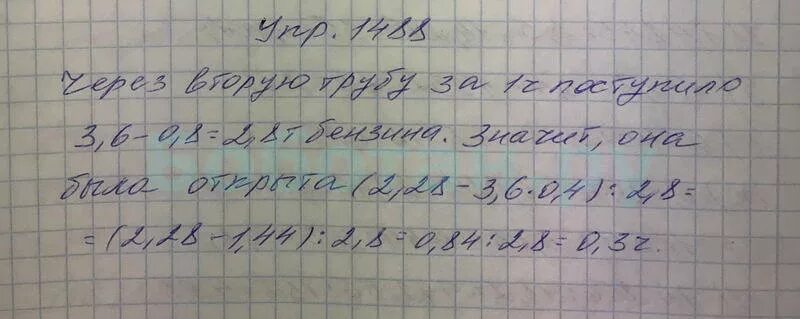 Упр. 1488
Через вторую трубу за 1ч поступило
3,6-0,8=2,8т бензина. Значит, она
была открыта (2,28-3,6·0,4):2,8=
=(2,28-1,44):2,8=0,84:2,8=0,3ч.